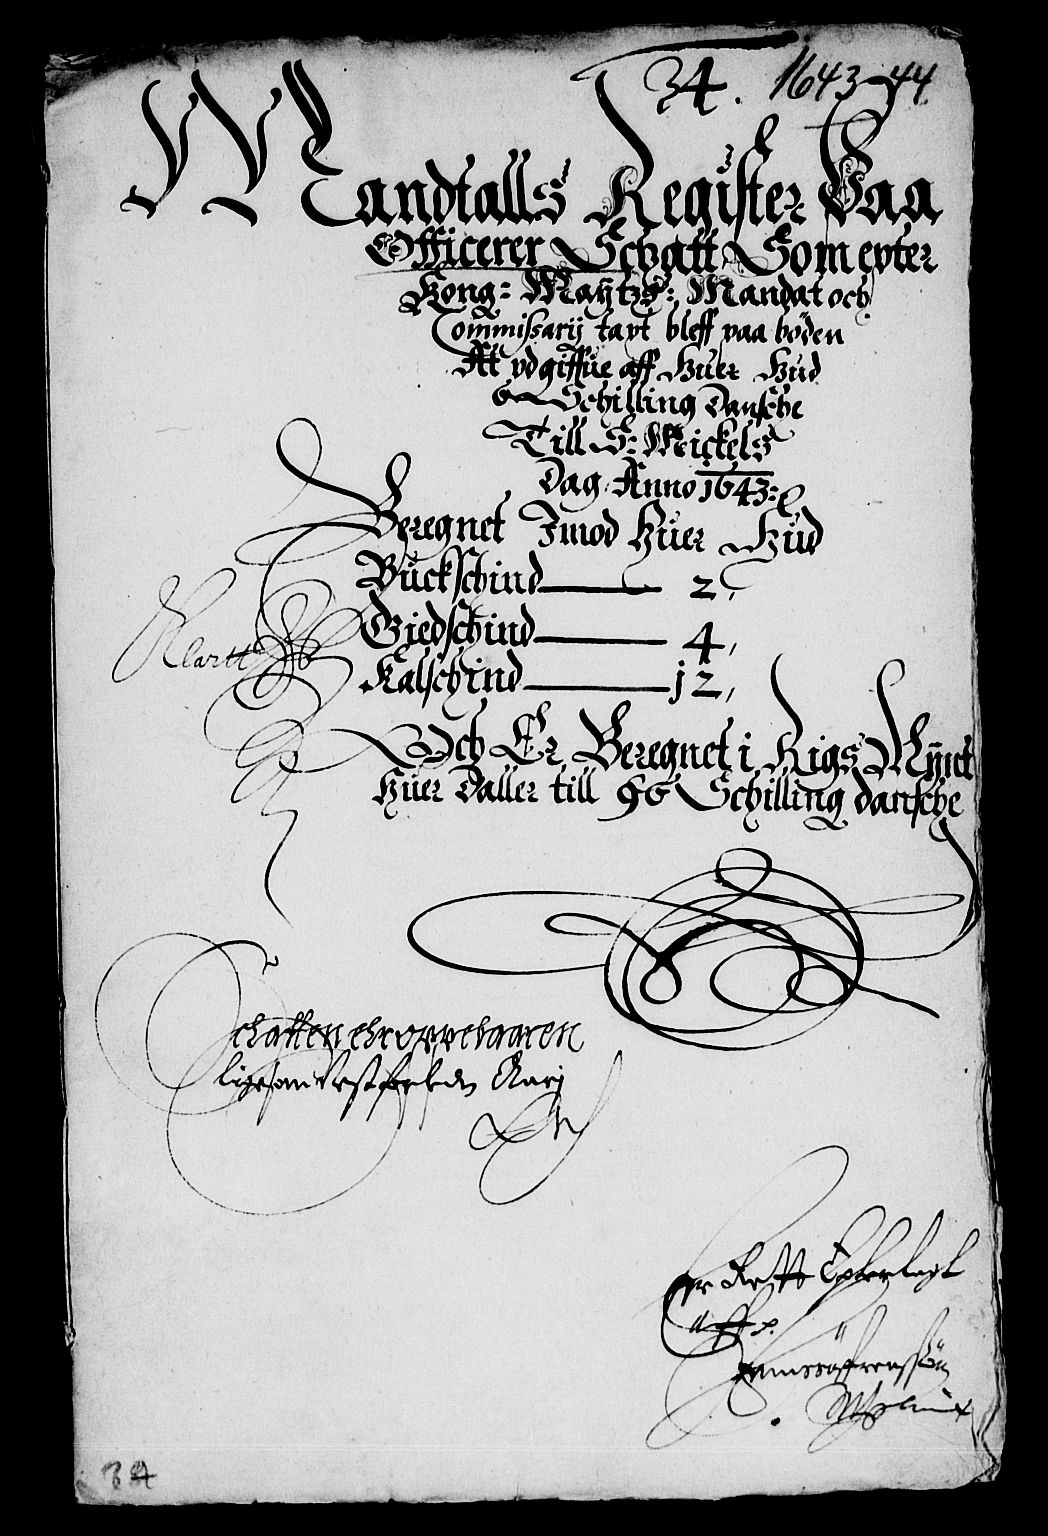 34. 1643-44.
Mandtalls Register Paa
Officerer Schatt, Som epter
Kong: Maÿtzs: Mandat och
Commissarij taxt bleff paa böden
At vdgiffue aff Huer Hud
6 Schilling Dansche
Till S: Mickels
Dag. Anno 1643:
Beregnet Imod Huer Hud
Buckschind 2,
Giedschind 4,
Kalschind 12,
Klartt
Och Er Beregnet i Rigs Mÿnt
Huer Daller till 96 Schilling dansche
Schatten ehr oppebaaren
Er Rett Epterlagt
aff
34